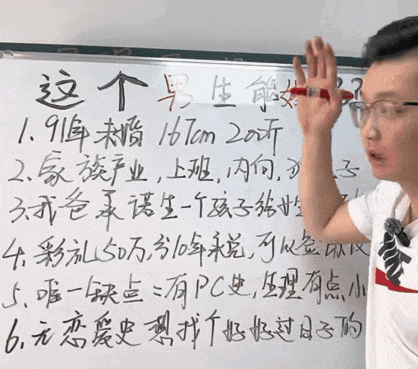 这个男生能
1.91年未婚 167cm 200斤
2.家族产业,上班,内向,子
3.我爸承诺生一个孩子给
4.彩礼50万,分10年承兑,可以签
5.唯一缺点:有PC史,生理有点小
6.无恋爱史想找个好好过日子的